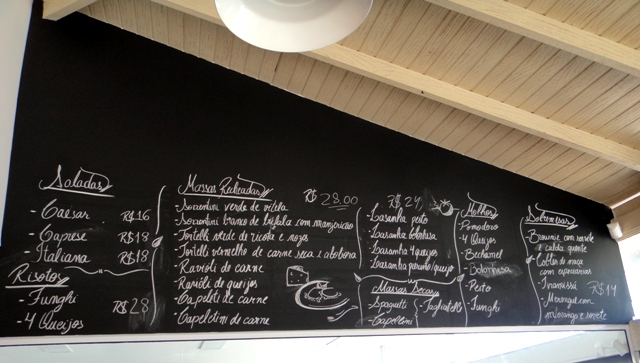 Saladas
- Caesar R$16
- Caprese R$18
- Italiana R$18
Risotos
- Funghi R$28
- 4 Queijos
Massas Recheadas R$ 28,00
- Sorentini verde de vitela
- Sorentini branco de búfala com manjericão
- Tortelli verde de ricota e nozes
- Tortelli vermelho de carne seca e abóbora
- Ravioli de carne
- Ravioli de queijos
- Capeleti de carne
- Capeletini de carne
R$ 24
- Lasanha pesto
- Lasanha bolonhesa
- Lasanha 4 queijos
- Lasanha presunto/queijo
Massas Secas
- Spaguetti
- Tagliatelle
- Capeletini
Molhos
- Pomodoro
- 4 Queijos
- Bechamel
- Bolonhesa
- Pesto
- Funghi
Sobremesas
- Brownie com sorvete e calda quente
- de maçã com especiarias
- Tiramissú R$14
- Merengue com morango e sorvete